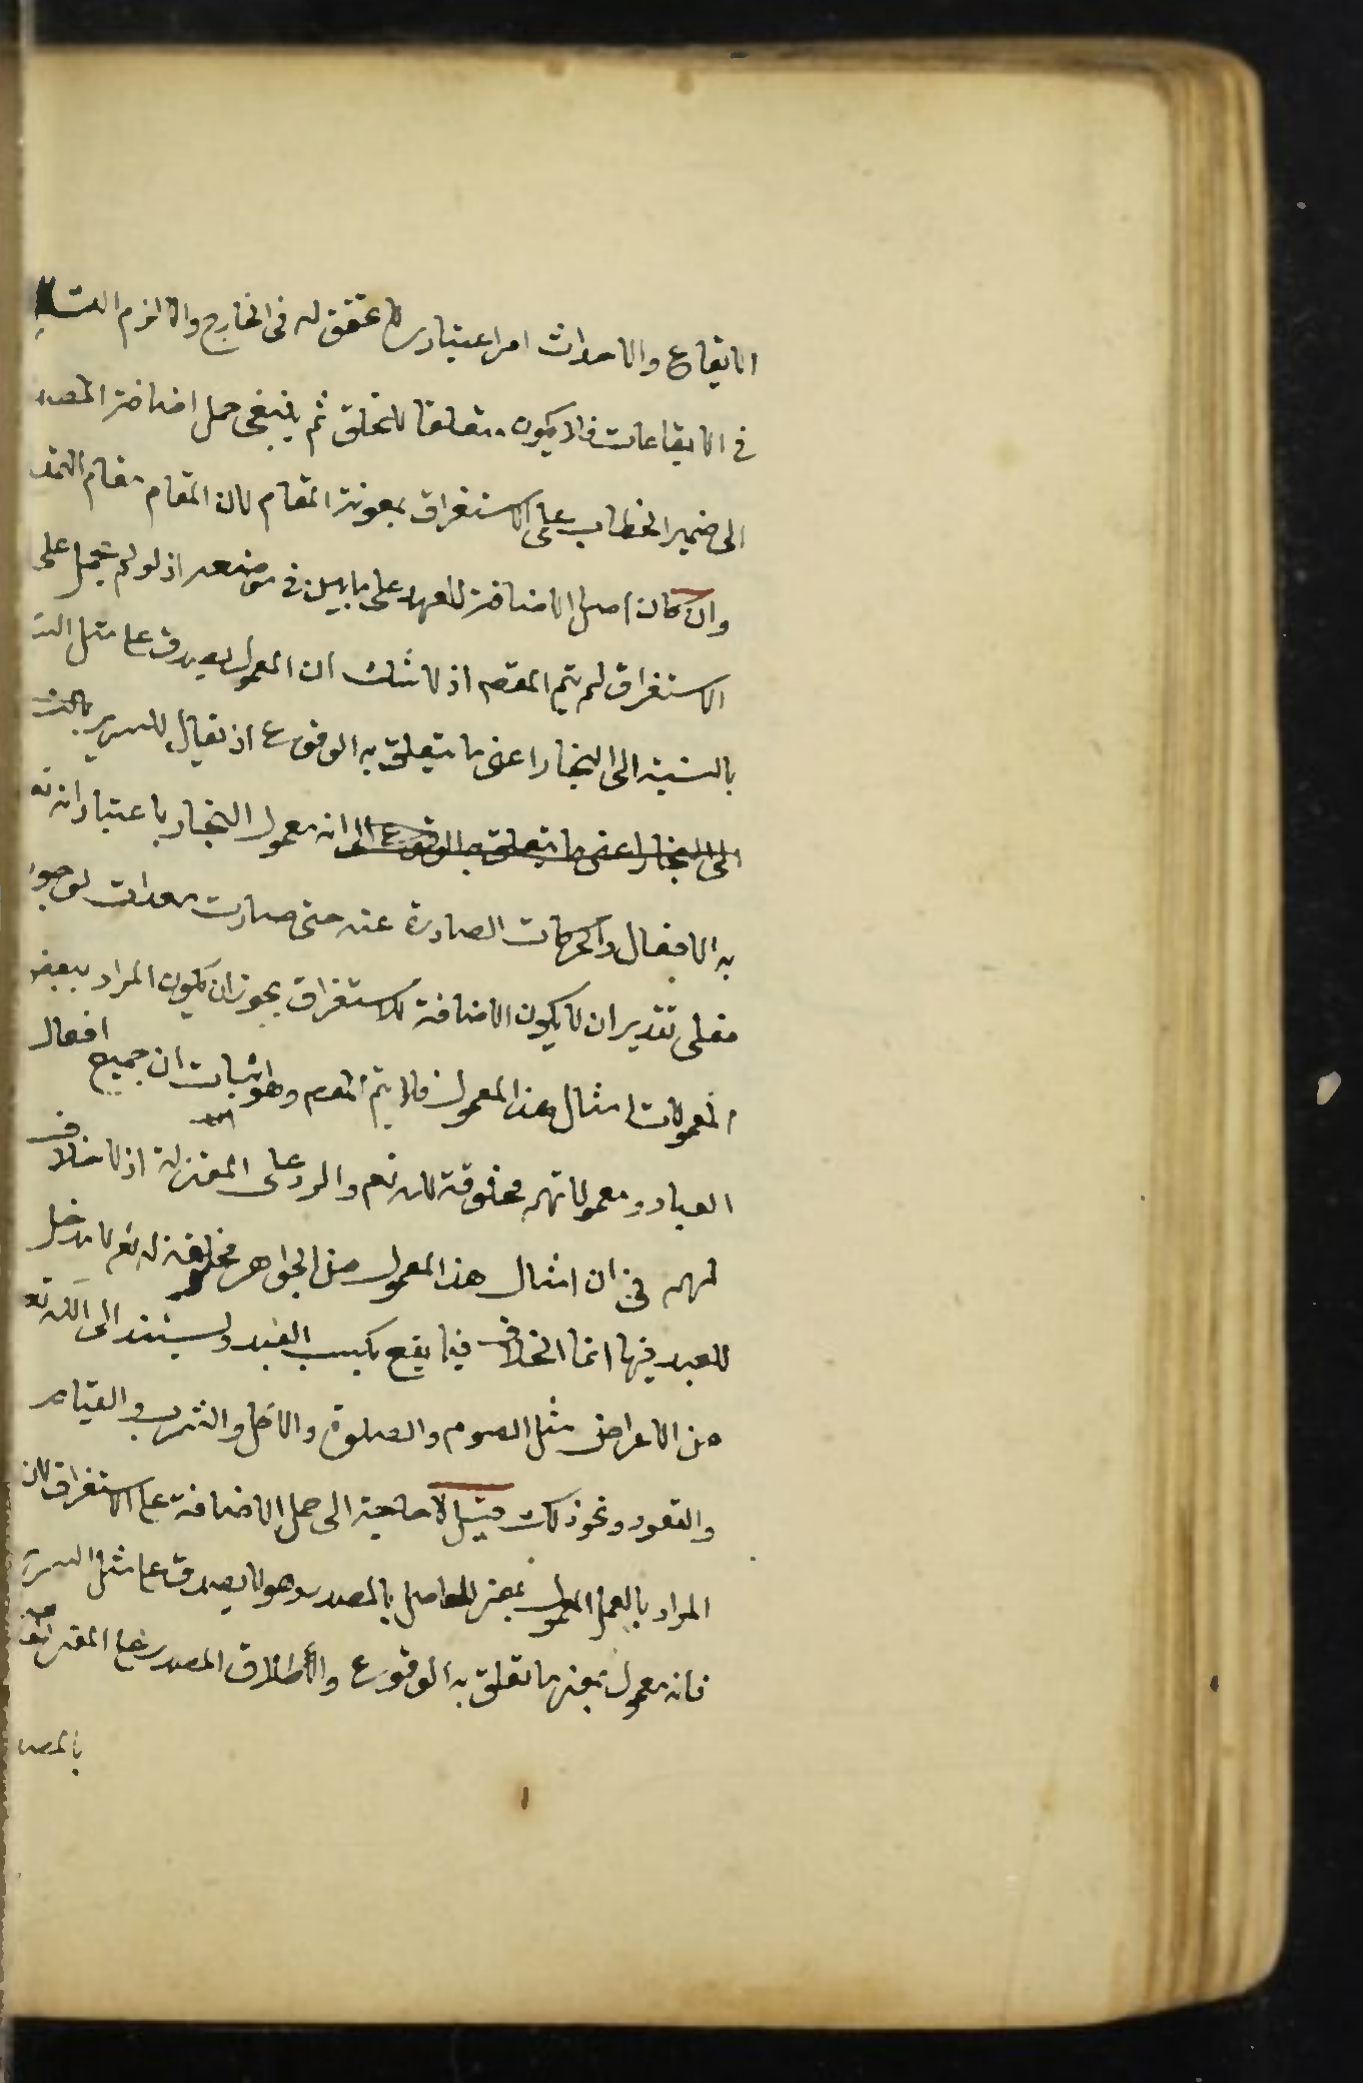 الايقاع والاحداث امر اعتبارى لا تحقق له فى الخارج والا لزم التسلـ
فى الايقاعات فلا يكون متعلقا للخلق ثم ينبغى حمل اضافة المصدر
الى ضمير الخطاب على الاستغراق بمعونة المقام لان المقام مقام التمد
وان كان اصل الاضافة للعهد على ما بين فى موضعه اذ لو لم يحمل على
الاستغراق لم يتم المقصـ اذ لا شك ان المعمول يصدق على مثل السر
بالنسبة الى النجار اعنى ما يتعلق به الوقوع اذ يقال للسرير بالنسـ
الى النجار اعنى ما يتعلق به الوقوع الى انه معمول النجار باعتبار انه تعـ
به الافعال والحركات الصادرة عنه حتى صارت معدات لوجو
فعلى تقدير ان لا يكون الاضافة للاستغراق يجوز ان يكون المراد ببعض
المعمولات امثال هذا المعمول فلا يتم المقصـ وهو اثبات ان جميع افعال
العباد ومعمولاتهم مخلوقة لله تعم والرد على المعتزلة اذ لا خلاف
لهم فى ان امثال هذا المعمول من الجواهر مخلوقة له تعم لا مدخل
للعبد فيها انما الخلاف فيما يقع بكسب العبد ويستند الى الله تعـ
من الاعراض مثل الصوم والصلوة والاكل والشرب والقيام
والقعود ونحو ذلك قيل لا حاجة الى حمل الاضافة على الاستغراق لان
المراد بالعمل المعمول بمعنى الحاصل بالمصدر وهو لا يصدق على مثل السر
فانه معمول بمعنى ما تعلق به الوقوع واطلاق المصدر على المعنى
بالمصد
١